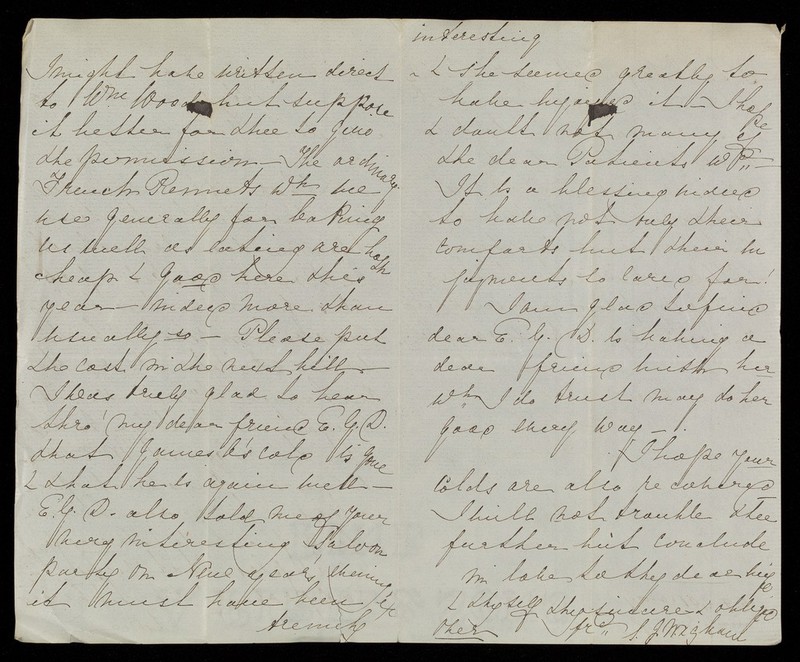 I might have written direct
to Wm Wood but suppose
it better for thee to give
the permission – The ordinary
French Rennets wh we
use generally for baking
as well as eating are both
cheap & good here this
year – indeed more than
usually so – Please put
the cost in the next bill –
I was truly glad to hear
thro' my dear friend E. G. D.
that James 's cold is gone
& that he is again well –
E. G. D. also told me of your
very interesting Saloon
party on New years evening
it must have been
extremely
interesting
& she seemed greatly to
have enjoyed it – I hope
& doubt not many of
the dear Patients
It is a blessing indeed
to have not only their
comforts but their en
joyments so cared for!
I am glad to find
dear E. G. D. is having a
dear friend with her
wh I do trust may do her
good every way –
I hope your
colds are also recovered
I will not trouble thee
further but conclude
in love to thy dear wife
& thyself thy sincere & obliged
frd S. J. Wigham
other